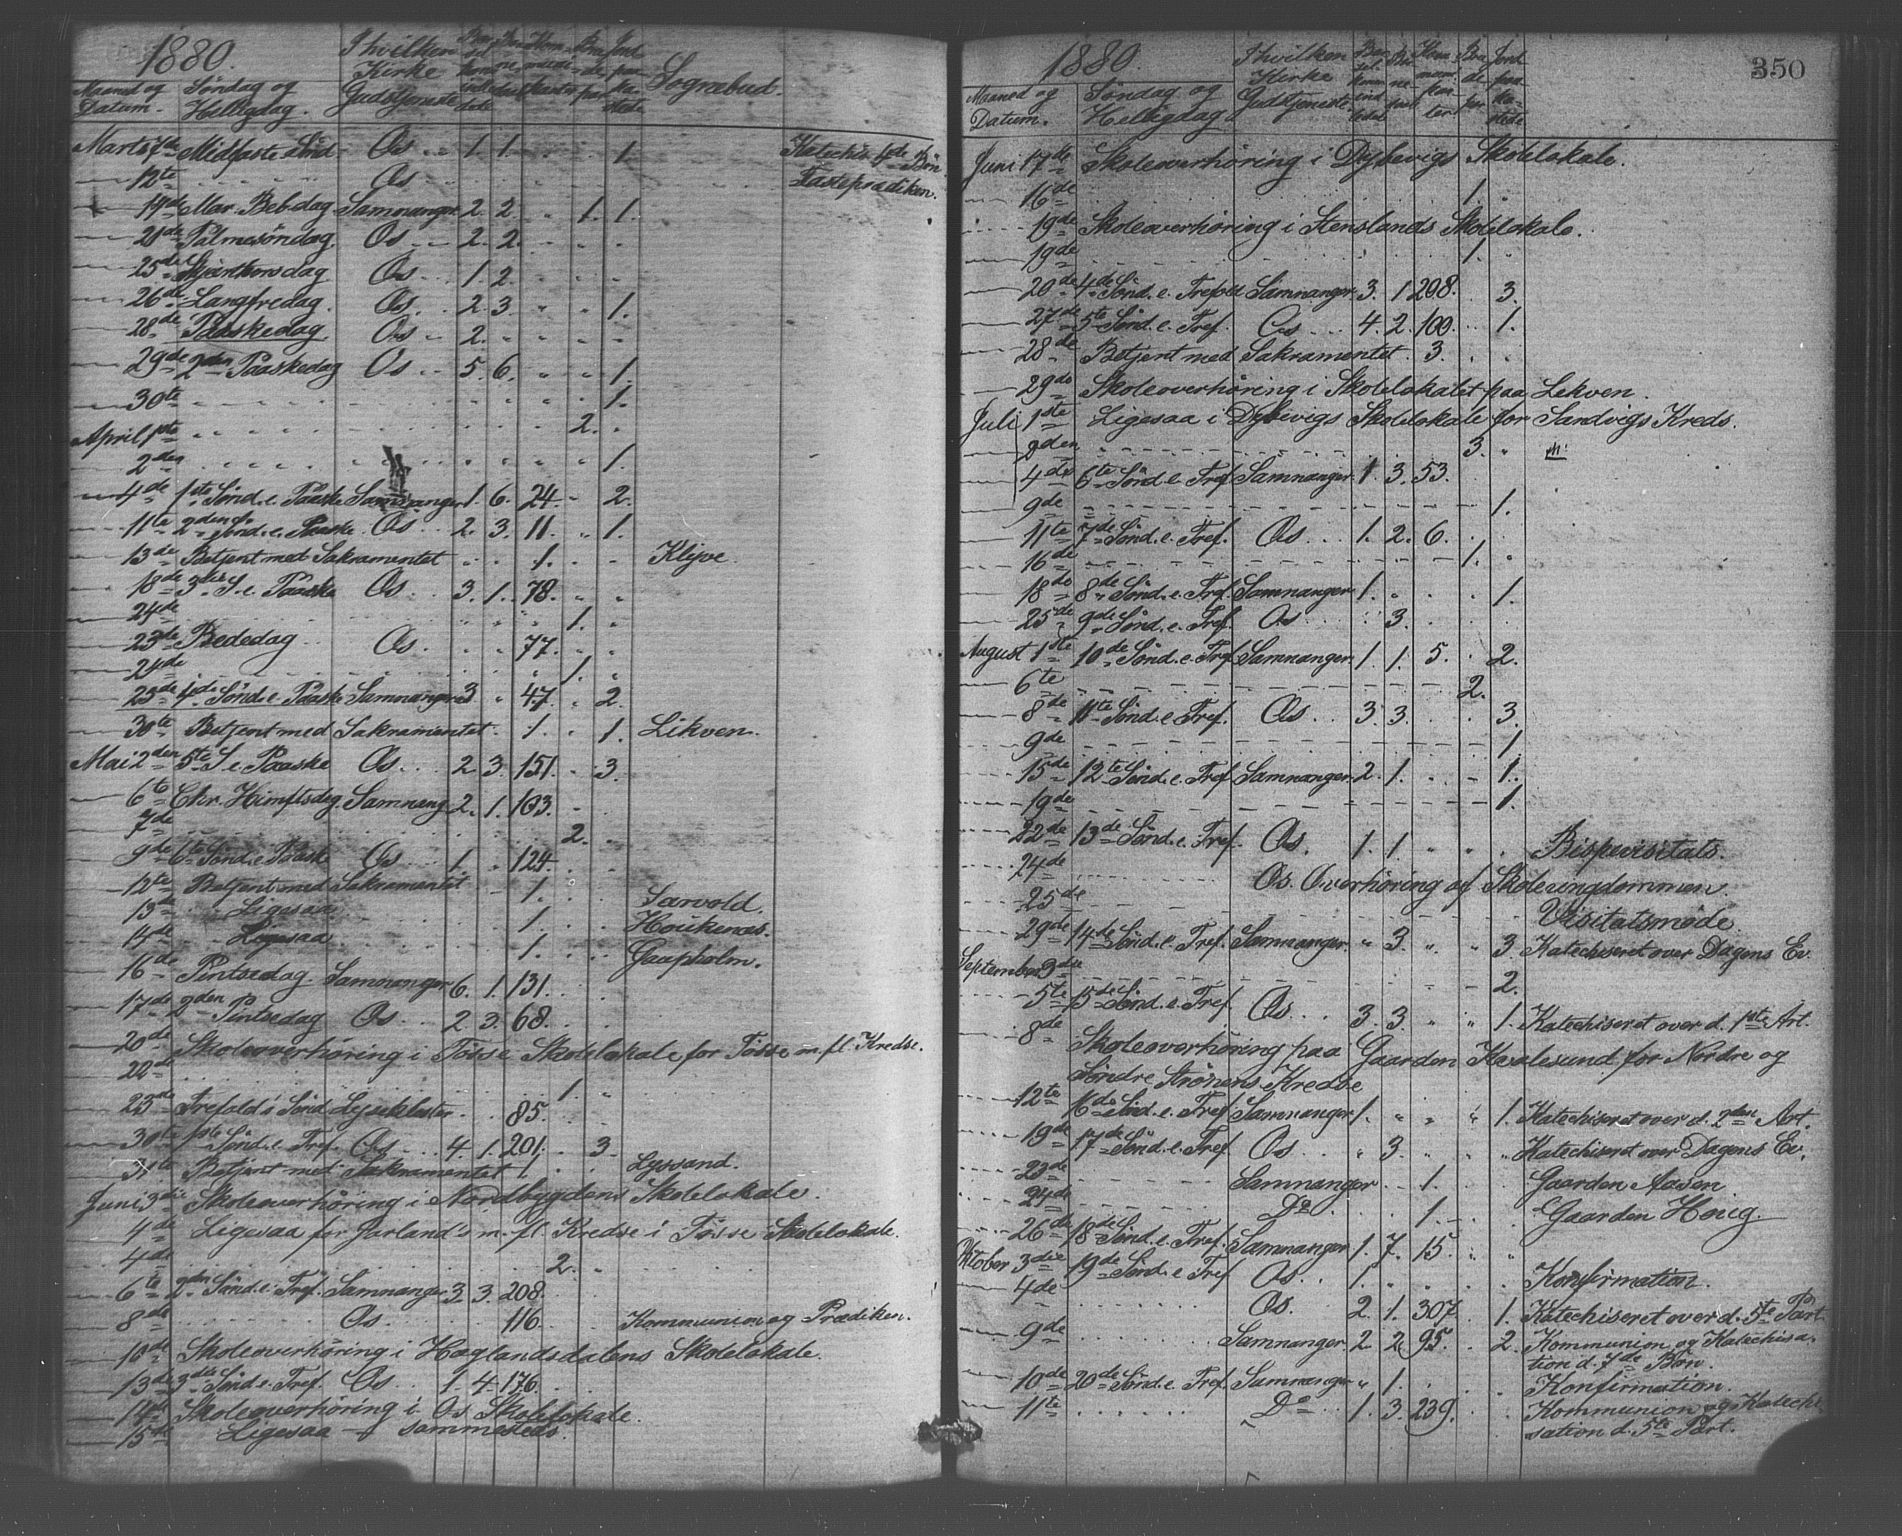 1880.
I hvilken
Kirke
Gudstjeneste
Sognebud.
Maaned og
Datum.
Søndag og
Helligdag.
Marts 7de Midfaste Sønd. Os 1. 1. 1. Katechis. 4de Bøn
12te Os Fasteprædiken.
19de Mar. Beb. dag Samnanger 2. 2. 1. 1.
21de Palmesøndag Os 2. 2.
25de Skjærthorsdag Os 1. 2.
26de Langfredag. Os. 2. 3. 1.
28de Paaskedag Os 2.
29de 2den Paaskedag Os 5. 6. 1.
30te 1.
April 1ste 2.
2den 1.
4de 1ste Sønd. e. Paaske Samnanger 1. 6. 24. 2.
11te 2den Sønd. e. Paaske Os 2. 3. 11. 1.
13de Betjent med Sakramentet 1. Klyve.
18de 3die S. e. Paaske Os 3. 1. 78.
24de 1.
23de Bededag Os. 77.
24de 1.
25de 4de Sønd. e. Paaske Samnanger 3 47. 2.
30te Betjent med Sakramentet 1. 1. Likven.
Mai 2den 5te S. e. Paaske Os 2. 3. 151. 3.
6te Chr. Himftsdag Samnang 2. 1. 103.
7de 2.
9de 6te Sønd. e. Paaske Os 1. 124.
12te Betjent med Sakramentet 1. Særvold.
13de Ligesaa 1. Houkenæs.
14de Ligesaa 1. Gaapholm.
16de Pintsedag Samnanger 6. 1. 131.
17de 2den Pintsedag Os 2. 3. 68.
20de Skoleoverhøring i Tøsse Skolelokale for Tøsse m. fl. Kredse.
22de 1.
23de Trefold's Sønd. Lysekloster 85.
30te 1ste Sønd. e. Tref. Os 4. 1. 201. 3.
31te Betjent med Sakramentet 1. Lyssand.
Juni 3die Skoleoverhøring i Nordbygdens Skolelokale.
4de Ligesaa for Jarland's m. fl. Kredse i Tøsse Skolelokale.
4de 2.
6te 2den Sønd. e. Tref. Samnanger 3. 3. 208.
8de Os 116. Kommunion og Prædiken.
10de Skoleoverhøring i Haglandsdalens Skolelokale.
13de 3die Sønd. e. Tref. Os 1. 4. 176.
14de Skoleoverhøring i Os Skolelokale.
15de Ligesaa sammesteds.
1880.
350
I hvilken
Kirke
Gudstjeneste
Maaned og
Datum.
Søndag og
Helligdag
Juni 17de Skoleoverhøring i Dybevigs Skolelokale.
16de 1.
19de Skoleoverhøring i Stenslands Skolelokale.
19de 1.
20de 4de Sønd. e. Trefold Samnanger 3. 1 298. 3.
27de 5te Sønd. e. Tref. Os 4. 2. 100. 1.
28de Betjent med Sakramentet. 3.
29de Skoleoverhøring i Skolelokalet paa Lekven.
Juli 1ste Ligesaa i Dybevigs Skolelokale for Sandvigs Kreds.
2den 3.
4de 6te Sønd. e. Tref Samnanger 1. 3. 53.
9de 1.
11te 7de Sønd. e. Tref. Os 1. 2. 6.
16de 1.
18de 8de Sønd. e. Tref. Samnanger 1. 1.
25de 9de Sønd. e. Tref. Os 3.
August 1ste 10de Sønd. e. Tref Samnanger 1. 1. 5. 2.
6te 2.
8de 11te Sønd. e. Tref. Os 3. 3. 3.
9de 1.
15de 12te Sønd. e. Tref Samnanger 2. 1. 1.
19de 1.
22de 13de Sønd. e. Tref. Os. 1. 1. Bispevisitats.
24de Os. Overhøring af Skoleungdommen.
25de Visitatsmøde.
29de 14de Sønd. e. Tref. Samnanger. 3. 3. Katechiseret over Dagens Ev.
September 3die 2.
5te 15de Sønd. e. Tref Os 3. 3. 1. Katechiseret over d. 1ste Art.
8de Skoleoverhøring paa Gaarden Hevlesund for Nordre og
Søndre Strønens Kredse
12te 16de Sønd. e. Tref Samnanger 1. 1. Katechiseret over d. 2den Art.
19de 17de Sønd. e. Tref Os 3. Katechiseret over Dagens Ev.
23de Samnanger 1. Gaarden Aasen.
24de Do 1. Gaarden Houg.
26de 18de Sønd. e. Tref. Samnanger 1. 7. 15.
Oktober 3die 19de Sønd. e. Tref Os 1. Konfirmation.
4de Os. 2. 1. 307 1. Katechiseret over d. 5te Part.
9de Samnanger. 2 2 95. 2. Kommunion og Katechisa-
tion d. 7de Bøn.
10de 20de Sønd. e. Tref. Samnanger 1. Konfirmation.
11te Do 1. 3. 239. Kommunion og Katechi-
sation d. 5te Part.